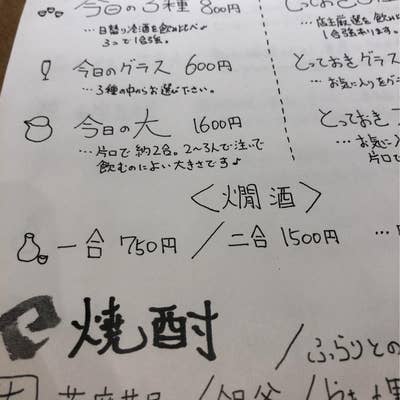 今日の3種 800円
…日替り冷酒を飲み比べ♪
3つで1合強。
今日のグラス 600円
…3種の中からお選び下さい。
今日の大 1600円
…片口で約2合。2〜3人で注いで
飲むのによい大きさです♪
とっておき
…店主厳選を飲み比
1合強あります。
とっておきグラ
…お気に入りをグ
とっておき
…お気に入
片口で
〈燗酒〉
一合 750円 / 二合 1500円
焼酎
/ふらりとの